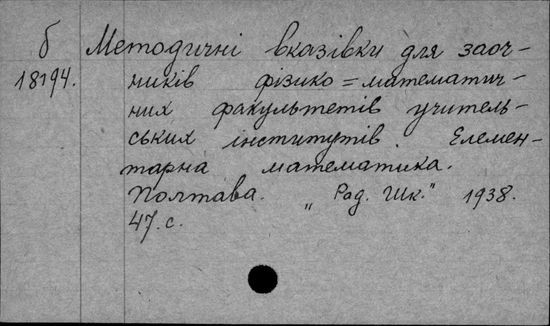 б Методичні вказівки для заоч-
18194. ників фізико=математич-
них факультетів учитель-
ських інститутів. Елемен-
тарна математика.
Полтава. „Рад. Шк." 1938.
47. с.